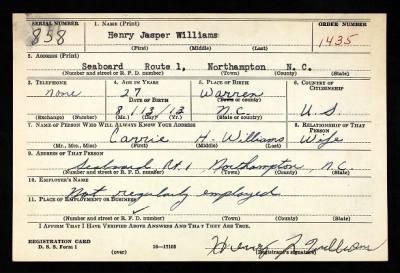 SERIAL NUMBER 1. NAME (Print) ORDER NUMBER
858 Henry Jasper Williams 1435
(First) (Middle) (Last)
2. ADDRESS (Print)
Seaboard Route 1, Northampton N. C.
(Number and street or R. F. D. number) (Town) (County) (State)
3. TELEPHONE 4. AGE IN YEARS 5. PLACE OF BIRTH 6. COUNTRY OF CITIZENSHIP
none 27 Warren
DATE OF BIRTH (Town or county)
8/13/13 N.C. U.S.
(Exchange) (Number) (Mo.) (Day) (Yr.) (State or country)
7. NAME OF PERSON WHO WILL ALWAYS KNOW YOUR ADDRESS 8. RELATIONSHIP OF THAT PERSON
Carrie H. Williams Wife
(Mr., Mrs., Miss) (First) (Middle) (Last)
9. ADDRESS OF THAT PERSON
Seaboard, Rt. 1 Northampton, N.C.
(Number and street or R. F. D. number) (Town) (County) (State)
10. EMPLOYER'S NAME
Not regularly employed
11. PLACE OF EMPLOYMENT OR BUSINESS
(Number and street or R. F. D. number) (Town) (County) (State)
I AFFIRM THAT I HAVE VERIFIED ABOVE ANSWERS AND THAT THEY ARE TRUE.
REGISTRATION CARD
D. S. S. Form 1 (over) 16-17105 Henry J. Williams
(Registrant's signature)